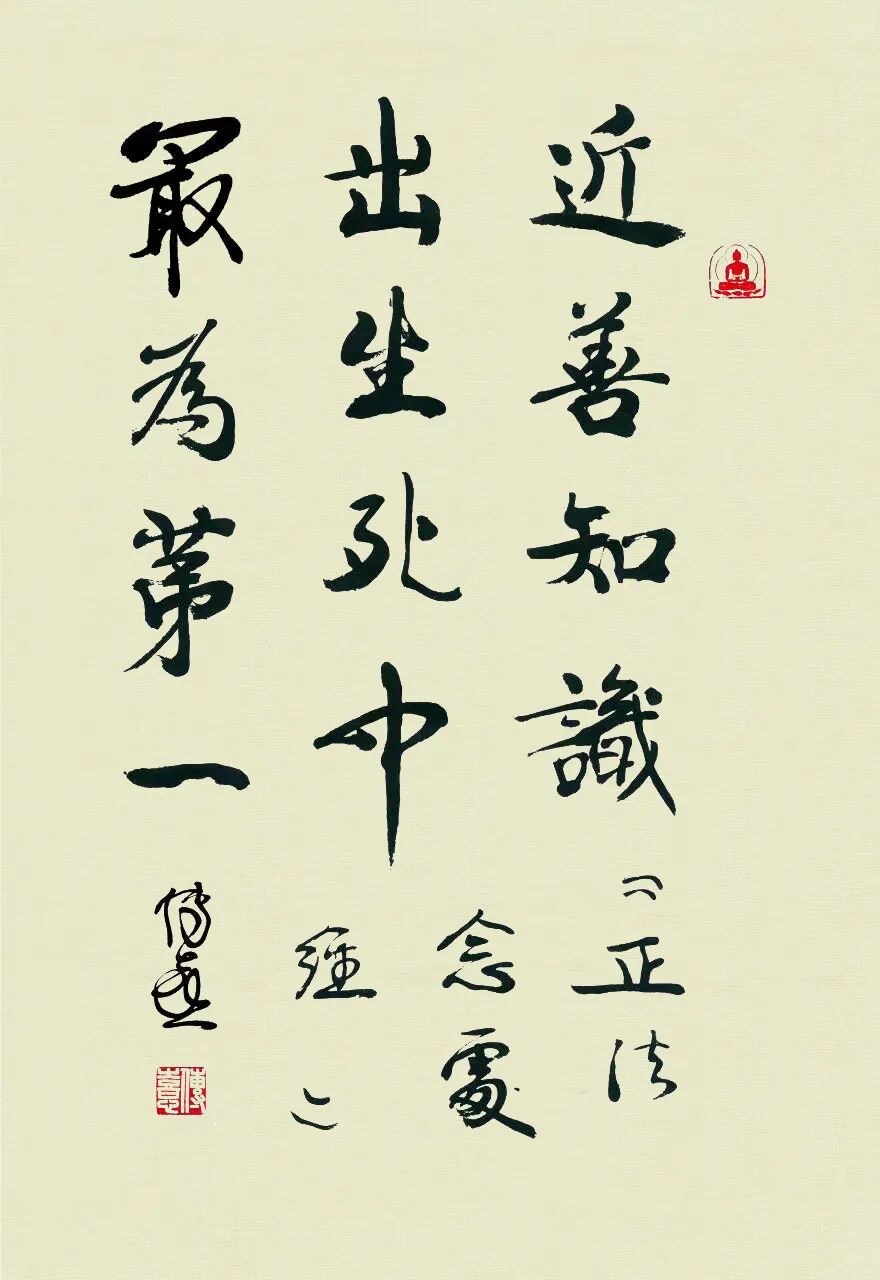 近善知識
出生死中
最為第一
《正法
念處
經》
傳喜